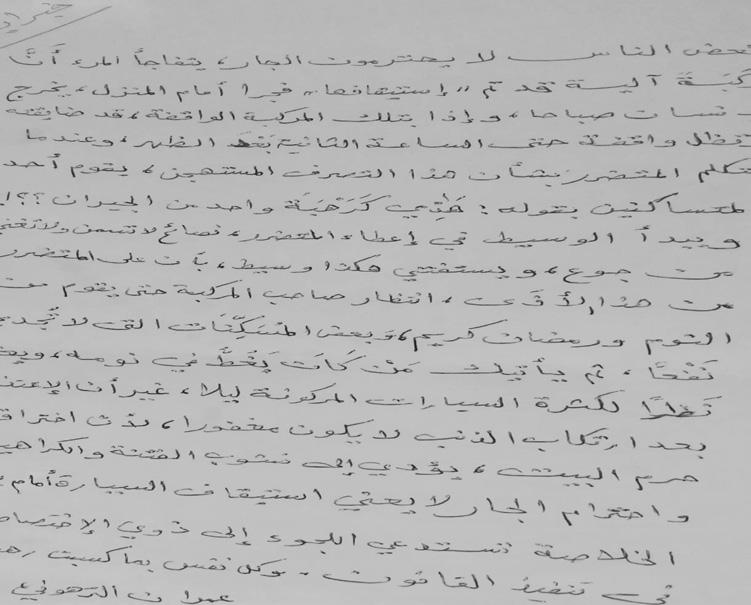 بعض الناس لا يحترمون الجار، يتفاجأ المرء أنَّ
آلية قد تم "إستيقافها" فجرا أمام المنزل، يخرج
صباحا، وإذا بتلك المركبة الواقفة، قد ضايقته
تظل واقفة حتى الساعة الثانية بَعْدَ الظهر، وعندما
تكلم المتضرر بشأن هذا التصرف المستهجن، يقوم أحد
المتساكنين بقوله: هَذِي كَرْهبَة واحد من الجيران؟؟!
ويبدأ الوسيط في إعطاء المتضرر، نصائح لا تسمن ولا تغني
من جوع، ويستفتي هكذا وسيط، بأن على المتضرر
من هذا الأذَى، انتظار صاحب المركبة حتى يقوم من
النوم ورمضان كريم، وَبعض المُسَكِّنَات التي لا تُجدي
نَفْعًا، ثم يأتيك مَنْ كَانَ يَغُطُّ في نومه،
نَظرًا لكثرة السيارات المركونة ليلا، غير أن
بعد ارتكاب الذنب لا يكون مغفورا، لأن اختراق
حرم البيت، يؤدي إلى نشوب الفتنة والكراهية
واحترام الجار لا يعني استيقاف السيارة أمام
الخلاصة تستدعي اللجوء إلى ذوي الإختصاص
في تنفيذ القانون. وكل نفس بما كسبت
عمران الترهوني